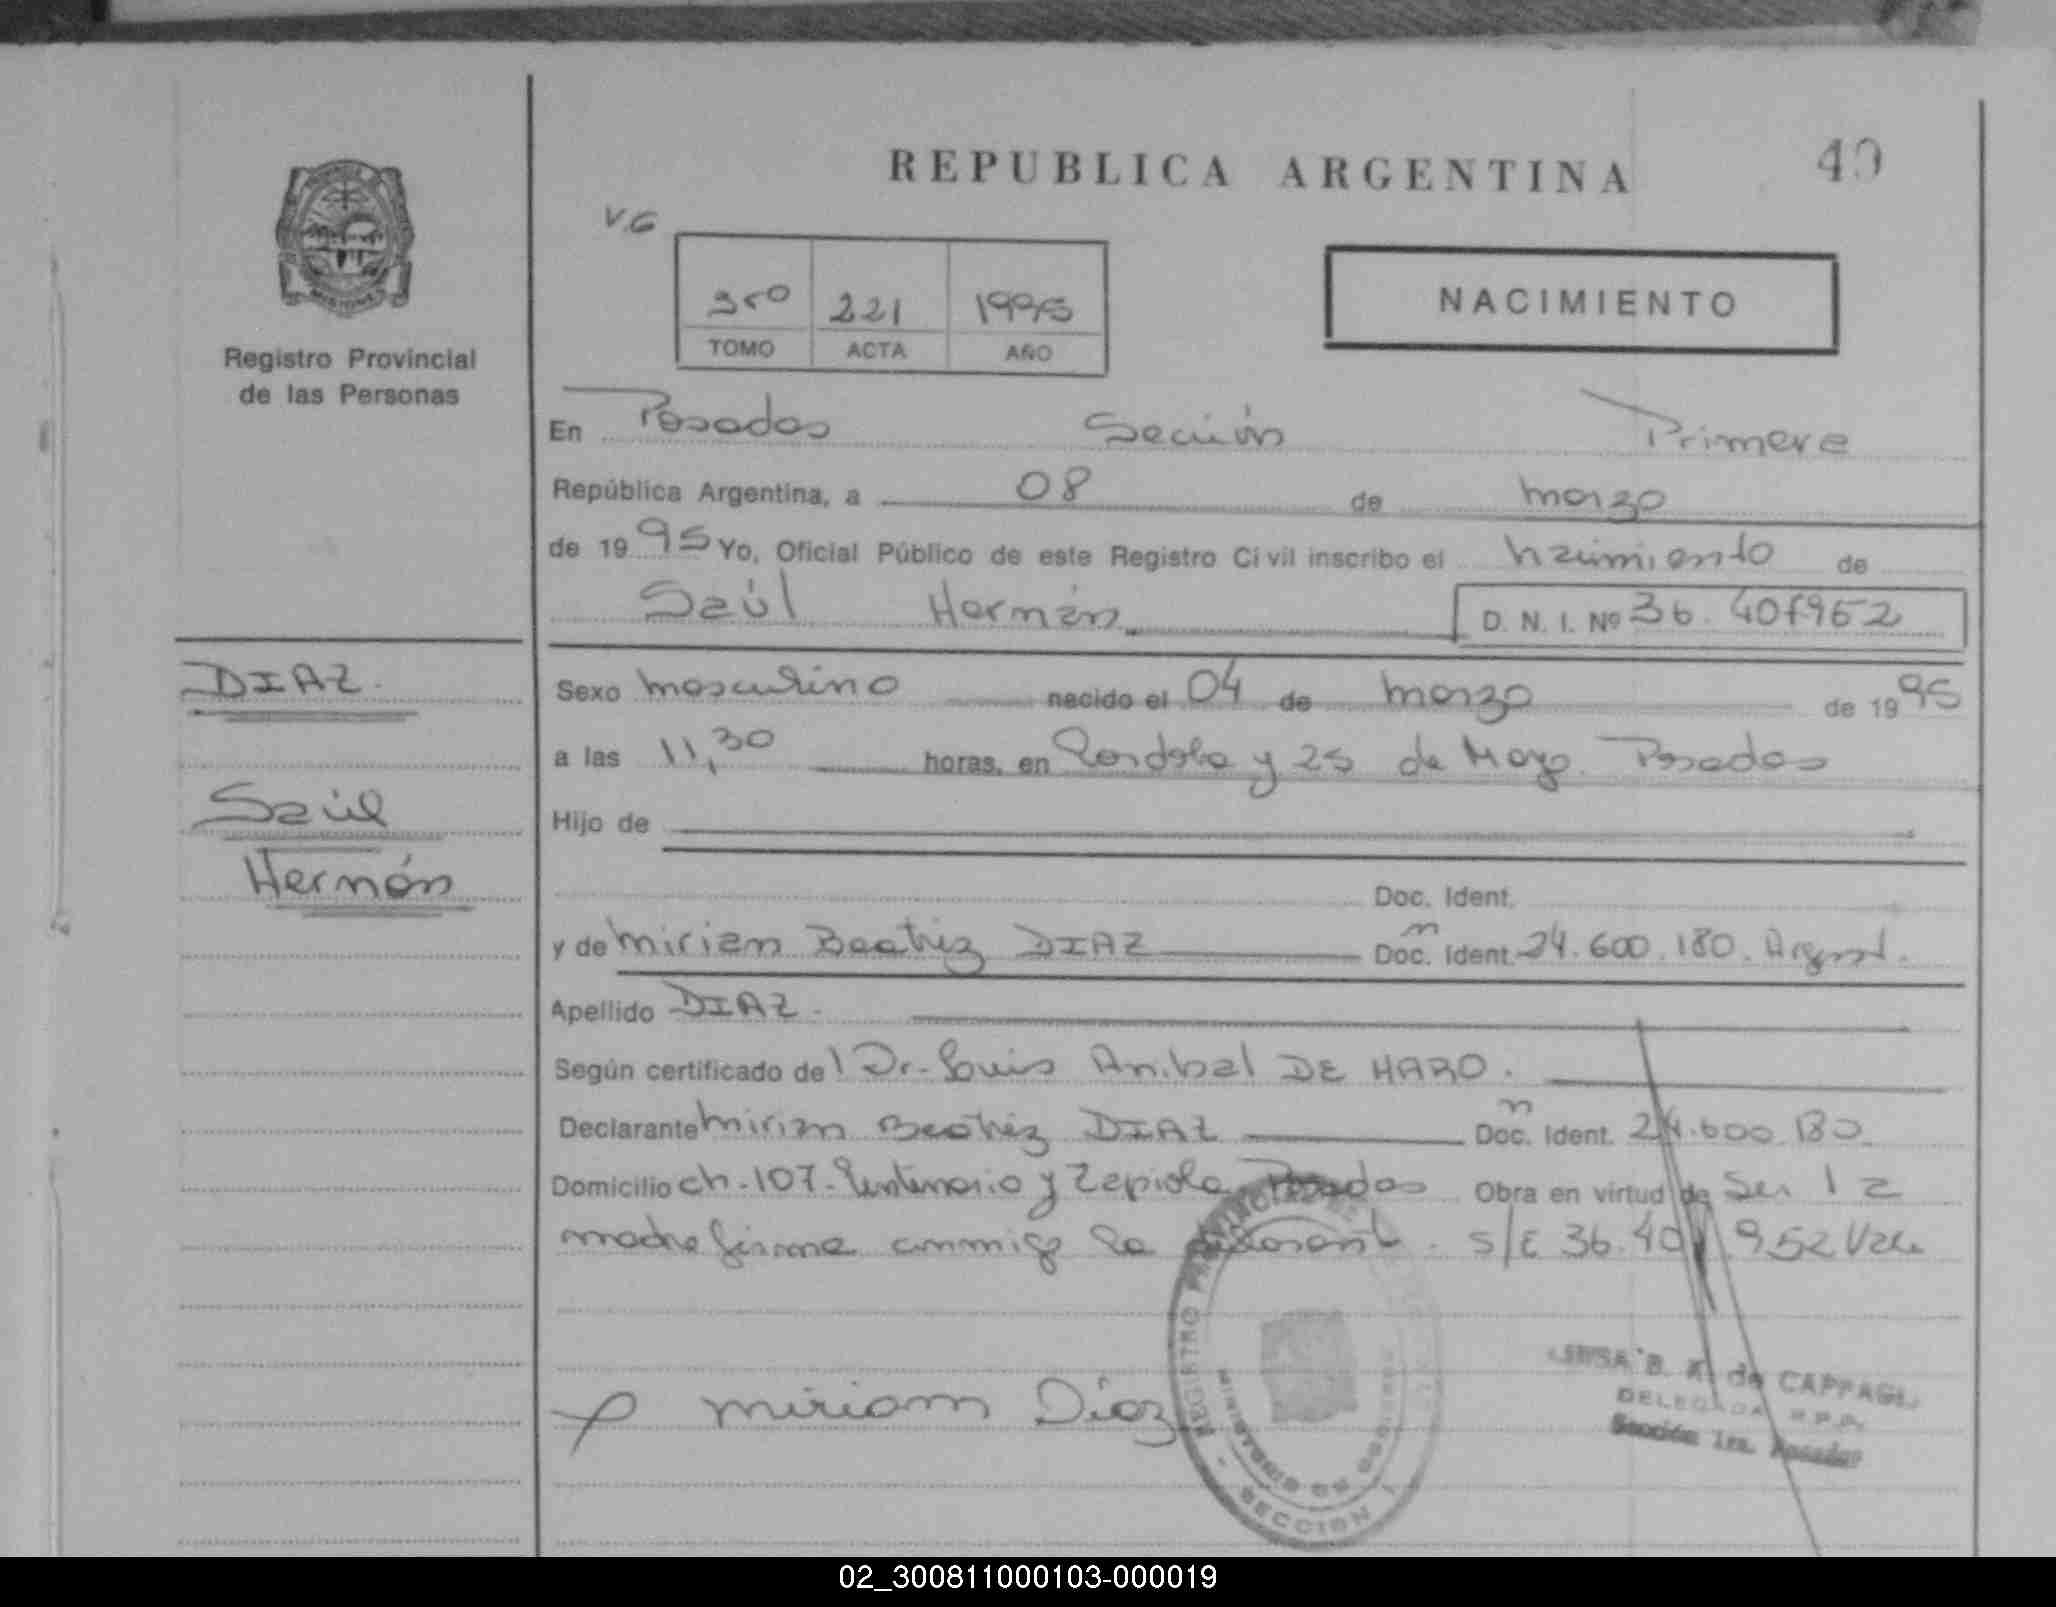 REPUBLICA ARGENTINA
40
V.G
Registro Provincial
de las Personas
3ro 221 1995
TOMO ACTA AÑO
NACIMIENTO
En Posadas Sección Primera
República Argentina, a 08 de marzo
de 1995 Yo, Oficial Público de este Registro Civil inscribo el nacimiento de
Saúl Hernán
D. N. I. Nº 36.407952
DIAZ.
Saúl
Hernán
Sexo masculino nacido el 04 de marzo de 1995
a las 11,30 horas, en Cordoba y 25 de Mayo. Posadas
Hijo de
Doc. Ident.
y de Miriam Beatriz DIAZ Doc. Ident. 24.600.180. Argent.
Apellido DIAZ.
Según certificado del Dr. Luis Anibal DE HARO.
Declarante Miriam Beatriz DIAZ Doc. Ident. 24.600.180
Domicilio ch. 107. Centenario y Zapiola Posadas Obra en virtud de Ser la
madre firma conmigo la s/E 36.40 952 Vale
Miriam Díaz
REGISTRO PROVINCIAL DE
MINISTERIO DE GOBIERNO
SECCION 1
B. K. de CAPPAGLI
DELEGADA R.P.P.
Sección 1ra. Posadas
02_300811000103-000019